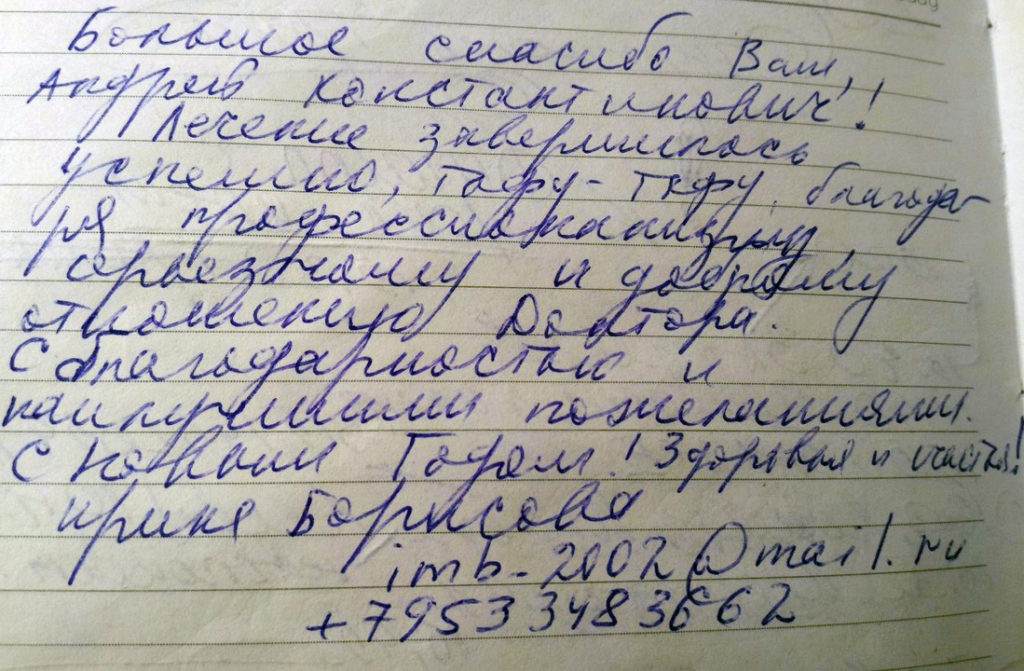 Большое спасибо Вам,
Андрей Константинович!
Лечение завершилось
успешно, Тьфу-Тьфу, благода-
ря профессионализму,
серьезному и доброму
отношению Доктора.
С благодарностью и
наилучшими пожеланиями.
С Новым Годом! Здоровья и счастья!
Ирина Борисова
imb-2002@mail.ru
+79533483662